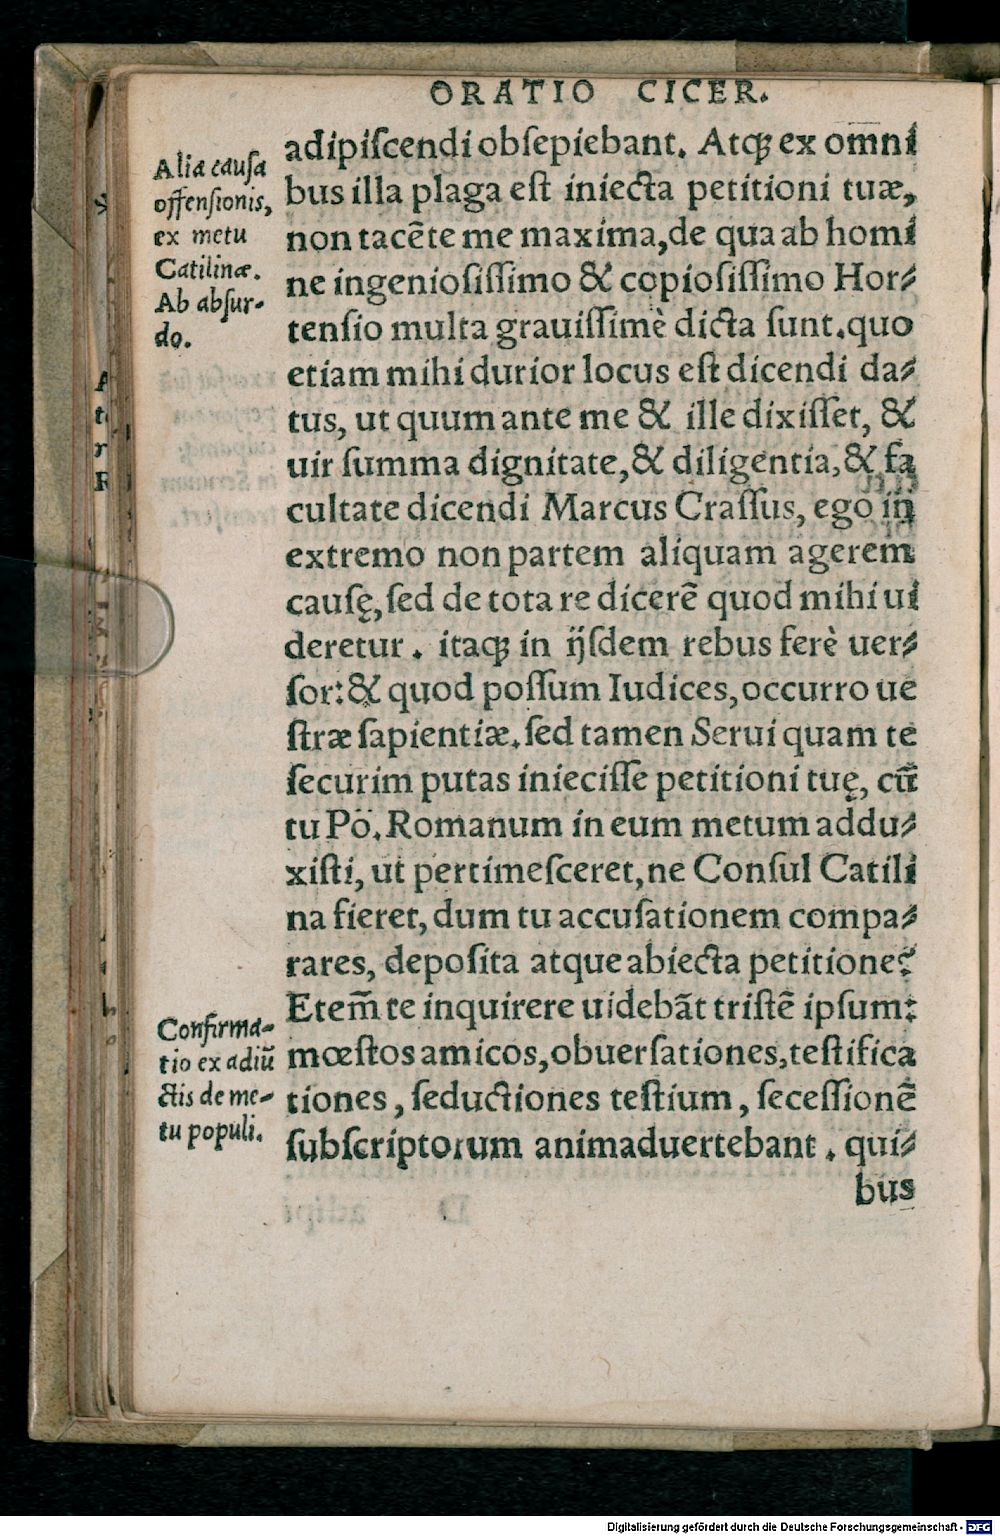 ORATIO CICER.
Alia causa
offensionis,
ex metu
Catilinæ.
Ab absur-
do.
adipiſcendi obſepiebant. Atq; ex omni
bus illa plaga eſt iniecta petitioni tuæ,
non tacẽte me maxima, de qua ab homi
ne ingenioſiſſimo & copioſiſſimo Hor-
tenſio multa grauiſſimè dicta ſunt. quo
etiam mihi durior locus eſt dicendi da-
tus, ut quum ante me & ille dixiſſet, &
uir ſumma dignitate, & diligentia, & fa
cultate dicendi Marcus Craſſus, ego in
extremo non partem aliquam agerem
cauſę, ſed de tota re dicerẽ quod mihi ui
deretur. itaq; in ijſdem rebus ferè uer-
ſor: & quod poſſum Iudices, occurro ue
ſtræ ſapientiæ. ſed tamen Serui quam te
ſecurim putas inieciſſe petitioni tuę, cũ
tu Pö. Romanum in eum metum addu-
xiſti, ut pertimeſceret, ne Conſul Catili
na fieret, dum tu accuſationem compa-
rares, depoſita atque abiecta petitione?
Etem̃ te inquirere uidebãt triſtẽ ipſum:
mœſtos amicos, obuerſationes, teſtifica
tiones, ſeductiones teſtium, ſeceſſionẽ
ſubſcriptorum animaduertebant. qui-
bus
Confirma-
tio ex adiũ
ctis de me-
tu populi.
Digitalisierung gefördert durch die Deutsche Forschungsgemeinschaft - DFG